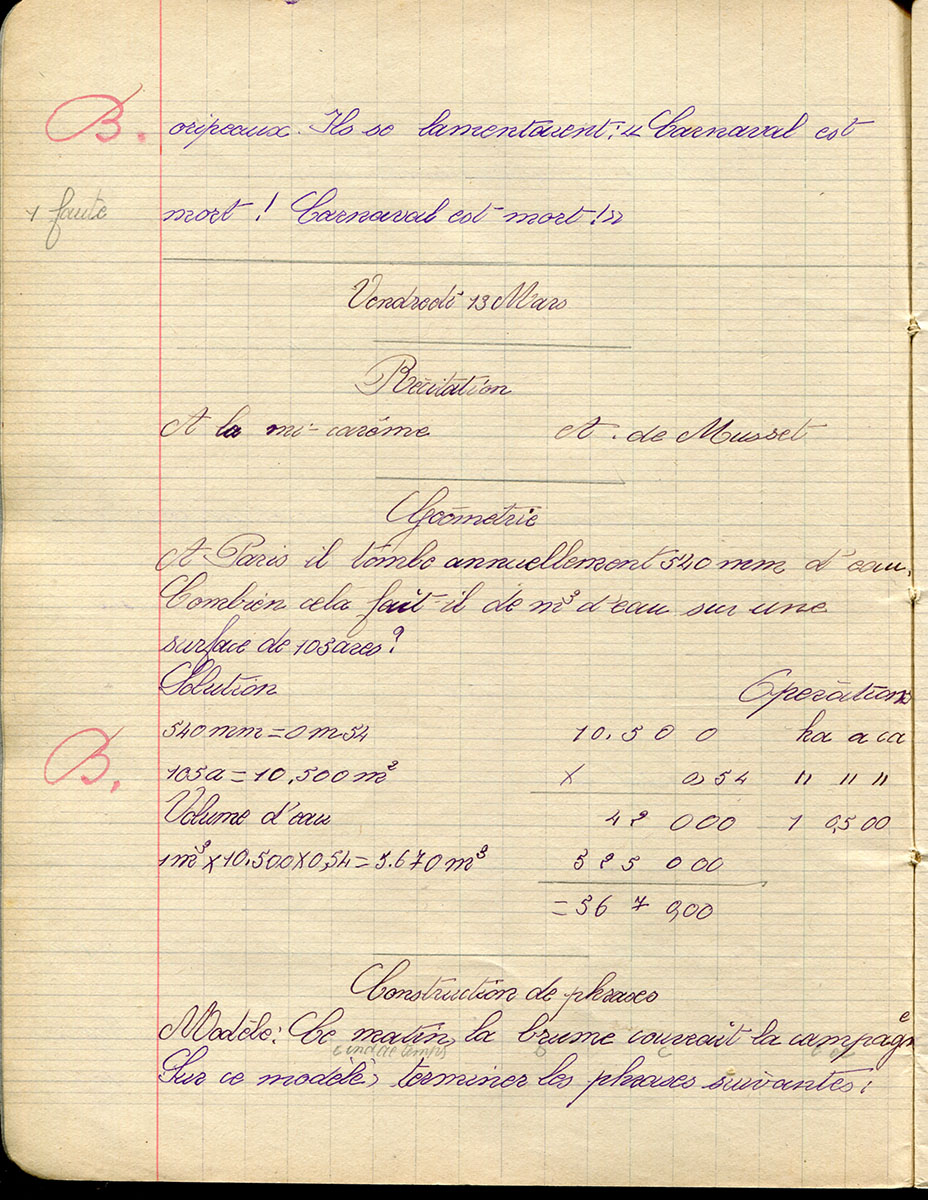 B. oripeaux. Ils se lamentaient : « Carnaval est
1 faute mort ! Carnaval est mort ! »
Vendredi 13 Mars
Récitation
A la mi-carême A. de Musset
Géométrie
A Paris il tombe annuellement 540 mm d'eau.
Combien cela fait il de m³ d'eau sur une
surface de 105 ares ?
Solution Opérations
540 mm = 0 m 54 10.500 ha a ca
B. 105a = 10.500 m² × 0,54 " " "
Volume d'eau 42 000 1 0,500
1m³ × 10.500 × 0,54 = 5.670 m³ 525 000
= 567 0,00
Construction de phrases
Modèle : Ce matin, la brume couvrait la campagne
Sur ce modèle, terminer les phrases suivantes :